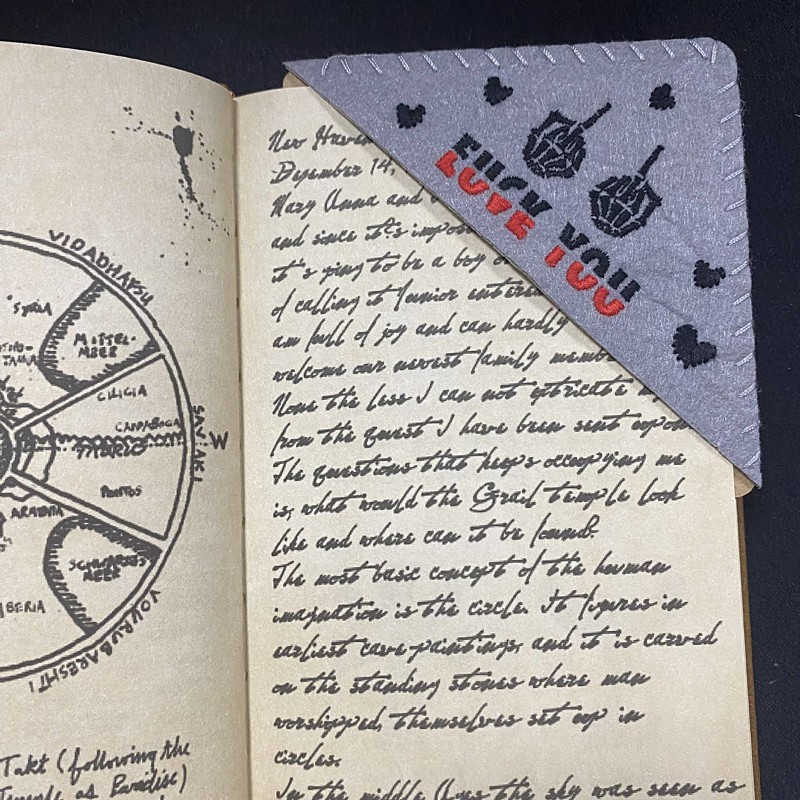 VIDADHAFSU
SYRIA
MITTEL-
MEER
CILICIA
CAPPADOCIA
SAVAKI
W
PONTOS
SCHWARZES
MEER
IBERIA
VOURUBARESHTI
Takt (following the
Temple as Paradise)
New Haven
Desember 14,
Mary Anna and
and since it's impos
it's ging to be a boy o
of calling it Junior entered
am full of joy and can hardly
welcome our newest family membe
None the less I can not extricate m
from the quest I have been sent upon
The questions that keeps occupying me
is, what would the Grail temple look
like and where can it be found.
The most basic concept of the human
imagination is the circle. It figures in
earliest cave paintings, and it is carved
on the standing stones where man
worshipped, themselves set up in
circles.
In the middle Ages the sky was seen as
FUCK YOU
LOVE YOU